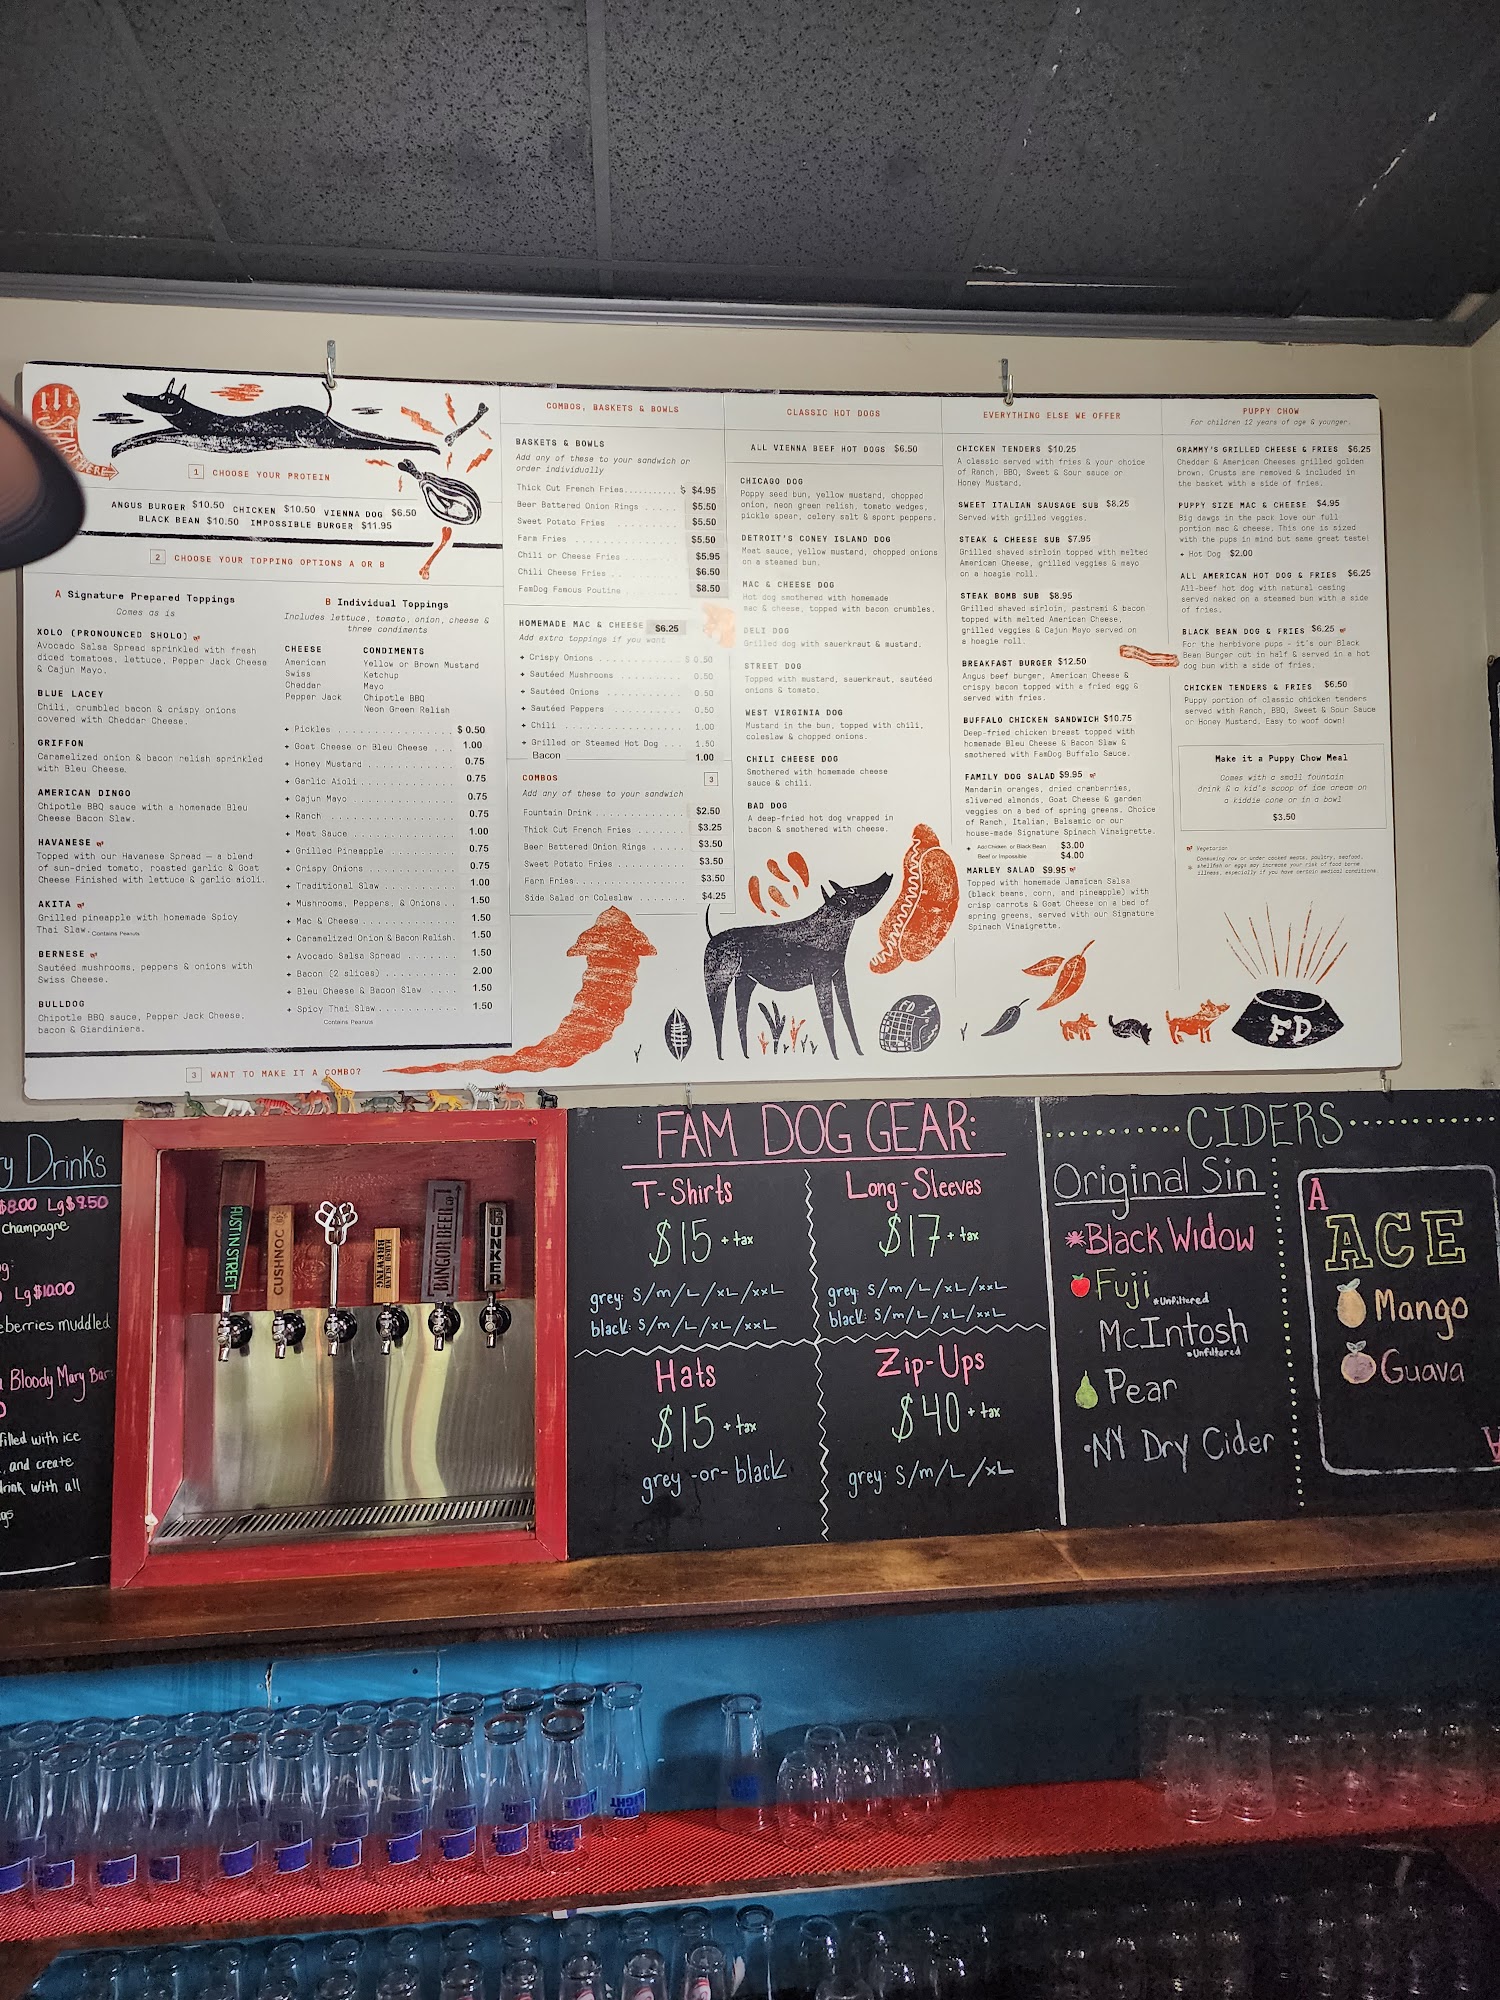 START HERE
1 CHOOSE YOUR PROTEIN
ANGUS BURGER $10.50 CHICKEN $10.50 VIENNA DOG $6.50
BLACK BEAN $10.50 IMPOSSIBLE BURGER $11.95
2 CHOOSE YOUR TOPPING OPTIONS A OR B
A Signature Prepared Toppings
Comes as is
XOLO (PRONOUNCED SHOLO)
Avocado Salsa Spread sprinkled with fresh
diced tomatoes, lettuce, Pepper Jack Cheese
& Cajun Mayo.
BLUE LACEY
Chili, crumbled bacon & crispy onions
covered with Cheddar Cheese.
GRIFFON
Caramelized onion & bacon relish sprinkled
with Bleu Cheese.
AMERICAN DINGO
Chipotle BBQ sauce with a homemade Bleu
Cheese Bacon Slaw.
HAVANESE
Topped with our Havanese Spread – a blend
of sun-dried tomato, roasted garlic & Goat
Cheese Finished with lettuce & garlic aioli.
AKITA
Grilled pineapple with homemade Spicy
Thai Slaw. Contains Peanuts
BERNESE
Sautéed mushrooms, peppers & onions with
Swiss Cheese.
BULLDOG
Chipotle BBQ sauce, Pepper Jack Cheese,
bacon & Giardiniera.
B Individual Toppings
Includes lettuce, tomato, onion, cheese &
three condiments
CHEESE
American
Swiss
Cheddar
Pepper Jack
CONDIMENTS
Yellow or Brown Mustard
Ketchup
Mayo
Chipotle BBQ
Neon Green Relish
+ Pickles $ 0.50
+ Goat Cheese or Bleu Cheese 1.00
+ Honey Mustard 0.75
+ Garlic Aioli 0.75
+ Cajun Mayo 0.75
+ Ranch 0.75
+ Meat Sauce 1.00
+ Grilled Pineapple 0.75
+ Crispy Onions 0.75
+ Traditional Slaw 1.00
+ Mushrooms, Peppers, & Onions 1.50
+ Mac & Cheese 1.50
+ Caramelized Onion & Bacon Relish. 1.50
+ Avocado Salsa Spread 1.50
+ Bacon (2 slices) 2.00
+ Bleu Cheese & Bacon Slaw 1.50
+ Spicy Thai Slaw 1.50
Contains Peanuts
3 WANT TO MAKE IT A COMBO?
COMBOS, BASKETS & BOWLS
BASKETS & BOWLS
Add any of these to your sandwich or
order individually
Thick Cut French Fries $ $4.95
Beer Battered Onion Rings $5.50
Sweet Potato Fries $5.50
Farm Fries $5.50
Chili or Cheese Fries $5.95
Chili Cheese Fries $6.50
FamDog Famous Poutine $8.50
HOMEMADE MAC & CHEESE $6.25
Add extra toppings if you want
+ Crispy Onions $ 0.50
+ Sautéed Mushrooms 0.50
+ Sautéed Onions 0.50
+ Sautéed Peppers 0.50
+ Chili 1.00
+ Grilled or Steamed Hot Dog 1.50
Bacon 1.00
COMBOS 3
Add any of these to your sandwich
Fountain Drink $2.50
Thick Cut French Fries $3.25
Beer Battered Onion Rings $3.50
Sweet Potato Fries $3.50
Farm Fries $3.50
Side Salad or Coleslaw $4.25
CLASSIC HOT DOGS
ALL VIENNA BEEF HOT DOGS $6.50
CHICAGO DOG
Poppy seed bun, yellow mustard, chopped
onion, neon green relish, tomato wedges,
pickle spear, celery salt & sport peppers.
DETROIT'S CONEY ISLAND DOG
Meat sauce, yellow mustard, chopped onions
on a steamed bun.
MAC & CHEESE DOG
Hot dog smothered with homemade
mac & cheese, topped with bacon crumbles.
DELI DOG
Grilled dog with sauerkraut & mustard.
STREET DOG
Topped with mustard, sauerkraut, sautéed
onions & tomato.
WEST VIRGINIA DOG
Mustard in the bun, topped with chili,
coleslaw & chopped onions.
CHILI CHEESE DOG
Smothered with homemade cheese
sauce & chili.
BAD DOG
A deep-fried hot dog wrapped in
bacon & smothered with cheese.
EVERYTHING ELSE WE OFFER
CHICKEN TENDERS $10.25
A classic served with fries & your choice
of Ranch, BBQ, Sweet & Sour sauce or
Honey Mustard.
SWEET ITALIAN SAUSAGE SUB $8.25
Served with grilled veggies.
STEAK & CHEESE SUB $7.95
Grilled shaved sirloin topped with melted
American Cheese, grilled veggies & mayo
on a hoagie roll.
STEAK BOMB SUB $8.95
Grilled shaved sirloin, pastrami & bacon
topped with melted American Cheese,
grilled veggies & Cajun Mayo served on
a hoagie roll.
BREAKFAST BURGER $12.50
Angus beef burger, American Cheese &
crispy bacon topped with a fried egg &
served with fries.
BUFFALO CHICKEN SANDWICH $10.75
Deep-fried chicken breast topped with
homemade Bleu Cheese & Bacon Slaw &
smothered with FamDog Buffalo Sauce.
FAMILY DOG SALAD $9.95
Mandarin oranges, dried cranberries,
slivered almonds, Goat Cheese & garden
veggies on a bed of spring greens. Choice
of Ranch, Italian, Balsamic or our
house-made Signature Spinach Vinaigrette.
+ Add Chicken or Black Bean $3.00
Beef or Impossible $4.00
MARLEY SALAD $9.95
Topped with homemade Jamaican Salsa
(black beans, corn, and pineapple) with
crisp carrots & Goat Cheese on a bed of
spring greens, served with our Signature
Spinach Vinaigrette.
PUPPY CHOW
For children 12 years of age & younger.
GRAMMY'S GRILLED CHEESE & FRIES $6.25
Cheddar & American Cheeses grilled golden
brown. Crusts are removed & included in
the basket with a side of fries.
PUPPY SIZE MAC & CHEESE $4.95
Big dawgs in the pack love our full
portion mac & cheese. This one is sized
with the pups in mind but same great taste!
+ Hot Dog $2.00
ALL AMERICAN HOT DOG & FRIES $6.25
All-beef hot dog with natural casing
served naked on a steamed bun with a side
of fries.
BLACK BEAN DOG & FRIES $6.25
For the herbivore pups - it's our Black
Bean Burger cut in half & served in a hot
dog bun with a side of fries.
CHICKEN TENDERS & FRIES $6.50
Puppy portion of classic chicken tenders
served with Ranch, BBQ, Sweet & Sour Sauce
or Honey Mustard. Easy to woof down!
Make it a Puppy Chow Meal
Comes with a small fountain
drink & a kid's scoop of ice cream on
a kiddie cone or in a bowl
$3.50
Vegetarian
Consuming raw or under cooked meats, poultry, seafood,
shellfish or eggs may increase your risk of food borne
illness, especially if you have certain medical conditions.
FD
y Drinks
$8.00 Lg $9.50
Champagne
g:
Lg $10.00
eberries muddled
Bloody Mary Bar:
filled with ice
, and create
drink with all
gs
AUSTIN STREET
CUSHNOC
MARSH ISLAND BREWING
BANGOR BEER CO
BUNKER
FAM DOG GEAR:
T-Shirts
$15 + tax
grey: S/m/L/xL/xxL
black: S/m/L/xL/xxL
Long-Sleeves
$17 + tax
grey: S/m/L/xL/xxL
black: S/m/L/xL/xxL
Hats
$15 + tax
grey -or- black
Zip-Ups
$40 + tax
grey: S/m/L/xL
CIDERS
Original Sin
Black Widow
Fuji
*Unfiltered
McIntosh
*Unfiltered
Pear
•NY Dry Cider
A
ACE
Mango
Guava
A
BUD LIGHT